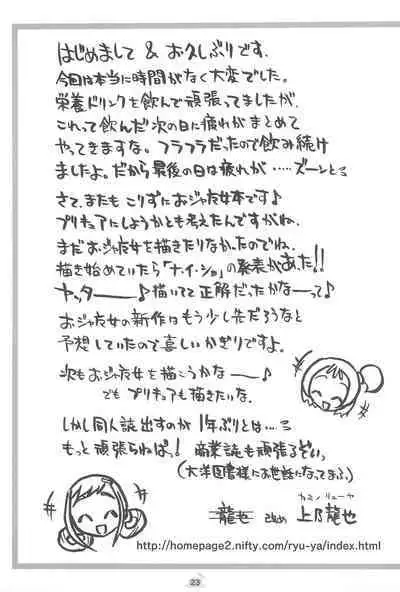 はじめまして & お久しぶりです.
今回は本当に時間がなく大変でした.
栄養ドリンクを飲んで頑張ってましたが.
これって飲んだ次の日に疲れがまとめて
やってきますな. フラフラだったので飲み続け
ましたよ. だから最後の日は疲れが ‥‥‥ズーンとう
さて、またも こりずにおジャ魔女本です♪
プリキュアにしようかとも考えたんですがね.
まだおジャ魔女を描きたりなかったのでね.
描き始めていたら「ナ・イ・ショ」の発表があった!!
ヤッター――♪ 描いてて正解だったかなーって♪
おジャ魔女の新作はもう少し先だろうなと
予想していたので喜しいかぎりですよ.
次もおジャ魔女を描こうかなー――♪
でも プリキュアも描きたいな.
しかし同人誌出すのが 1年ぶりとは…
もっと頑張らねばっ! 商業誌も頑張るぞいっ
(大洋図書様にお世話になってまふ)
カミノ リューヤ
龍也 改め 上乃龍也
http://homepage2.nifty.com/ryu-ya/index.html
23